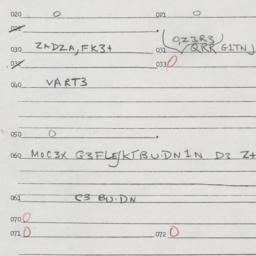 020 0 021 0
030 ZADZA,FK3+ 031 QZ3R3 QRR G1TNJ
032 033 0
040 VART3
050 0
060 MOC3X G3FLE/KTBU.DN1N D3 Z+
061 C3 BU.DN
070 0
071 0 072 0